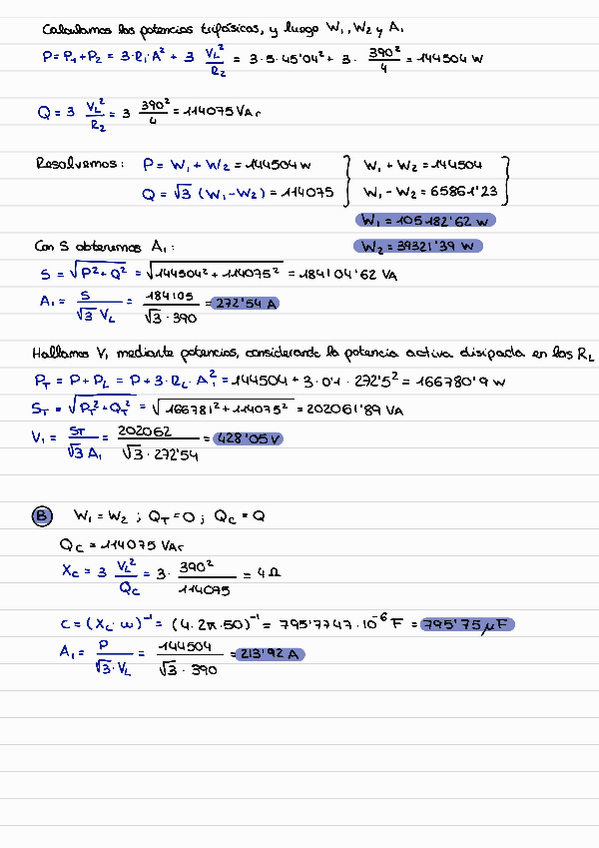 Calculamos las potencias trifásicas, y luego W₁, W₂ y A₁
P = P₁ + P₂ = 3·R₁·A² + 3 V_L²/R₂ = 3·5·45'04² + 3· 390²/4 = 144504 W
Q = 3 V_L²/R₂ = 3 390²/4 = 114075 VAr
Resolvemos: P = W₁ + W₂ = 144504 W } W₁ + W₂ = 144504 }
Q = √3 (W₁ - W₂) = 114075 } W₁ - W₂ = 65861'23 }
W₁ = 105182'62 W
Con S obtenemos A₁: W₂ = 39321'39 W
S = √(P² + Q²) = √(144504² + 114075²) = 184104'62 VA
A₁ = S/(√3 V_L) = 184105/(√3·390) = 272'54 A
Hallamos V₁ mediante potencias, considerando la potencia activa disipada en las R_L
P_T = P + P_L = P + 3·R_L·A₁² = 144504 + 3·0'1·272'5² = 166780'9 W
S_T = √(P_T² + Q_T²) = √(166781² + 114075²) = 202061'89 VA
V₁ = S_T/(√3 A₁) = 202062/(√3·272'54) = 428'05 V
B W₁ = W₂ ; Q_T = 0 ; Q_C = Q
Q_C = 114075 VAr
X_C = 3 V_L²/Q_C = 3· 390²/114075 = 4 Ω
C = (X_C·ω)⁻¹ = (4·2π·50)⁻¹ = 795'7747·10⁻⁶ F = 795'75 μF
A₁ = P/(√3·V_L) = 144504/(√3·390) = 213'92 A